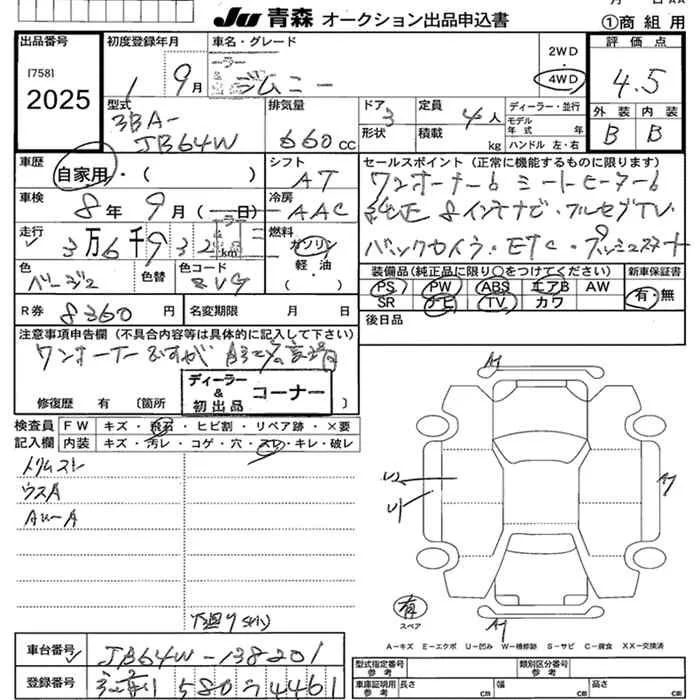 JU 青森 オークション出品申込書
①商 組 用
出品番号
(7581
2025
初度登録年月
1 9月
車名・グレード
ジムニー
2WD
4WD
評価点
4.5
外装 内装
B B
型式
3BA-
JB64W
排気量
660 cc
ドア 3
形状
定員 4人
積載 kg
ディーラー・並行
モデル
年式 年
ハンドル 左・右
車歴
自家用・( )
シフト
AT
セールスポイント(正常に機能するものに限ります)
ワンオーナー
純正 8インチナビ・フルセグTV
ETC・プッシュスタート
車検
8年 9月( 日)
冷房
AAC
走行
3万6千9 3 2 km
燃料
ガソリン
軽・油
( )
色
ベージュ
色替
色コード
装備品(純正品に限り○をつけてください)
PS PW ABS エアB AW
SR ナビ TV カワ
新車保証書
有・無
R券 8360円
名変期限 月 日
後日品
注意事項申告欄(不具合内容等は具体的に記入して下さい)
ワンオーナー
ディーラー
&
初出品
コーナー
修復歴 有〔箇所 〕
検査員
記入欄
FW キズ・飛石・ヒビ割・リペア跡・×要
内装 キズ・汚レ・コゲ・穴・スレ・キレ・破レ
ウスA
A1
U1
A1
A1
有
スペア
下廻り
A-キズ E-エクボ U-凹み W-補修跡 S-サビ C-腐食 XX-交換済
車台番号 JB64W-138201
登録番号 580 4461
型式指定番号
参考
類別区分番号
参考
車庫証明用
参考
長さ cm
幅 cm
高さ cm